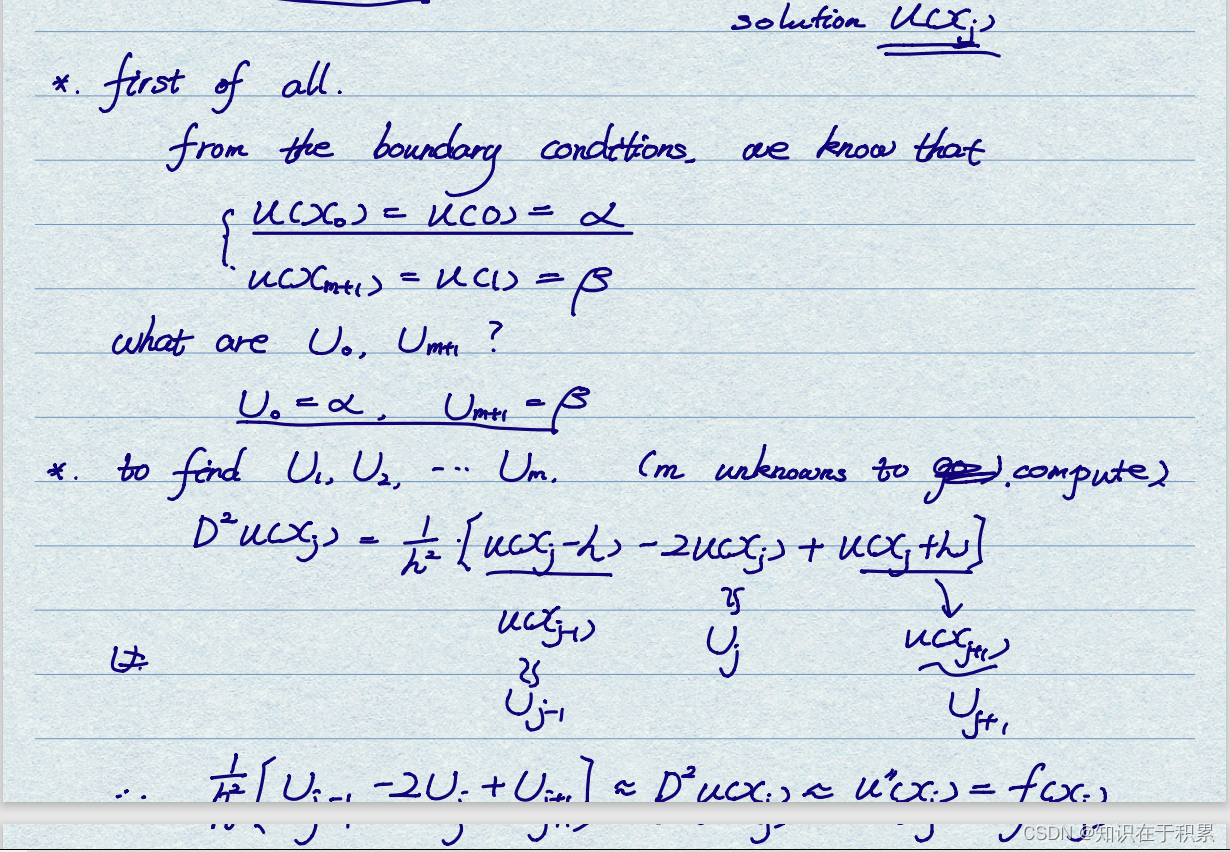 solution u(xj)
*. first of all.
from the boundary conditions, we know that
{ u(x₀) = u(0) = α
u(xₘ₊₁) = u(1) = β
what are U₀, Uₘ₊₁ ?
U₀ = α, Uₘ₊₁ = β
*. to find U₁, U₂, ... Uₘ. (m unknowns to compute)
D²u(xⱼ) = 1/h² · [u(xⱼ-h) - 2u(xⱼ) + u(xⱼ+h)]
u(xⱼ₋₁) ≈ Uⱼ₋₁
≈ Uⱼ
↓ u(xⱼ₊₁)
Uⱼ₊₁
∴ 1/h² [Uⱼ₋₁ - 2Uⱼ + Uⱼ₊₁] ≈ D²u(xⱼ) ≈ u″(xⱼ) = f(xⱼ)
CSDN @知识在于积累